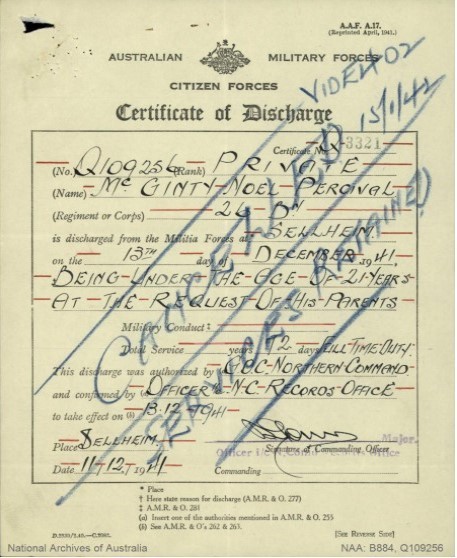 A.A.F. A.17.
(Reprinted April, 1941.)
AUSTRALIAN MILITARY FORCES
CITIZEN FORCES
Certificate of Discharge
VIDE 4 D2
15/1/42
Certificate No. X-3321
(No.) Q109256 (Rank) PRIVATE
(Name) Mc GINTY-NOEL PERCIVAL
(Regiment or Corps) 26 BN
is discharged from the Militia Forces at SELLHEIM
on the 13TH day of DECEMBER 1941,
BEING UNDER THE AGE OF 21 YEARS
AT THE REQUEST OF HIS PARENTS
CANCELLED
SERVICES RETAINED
Military Conduct: ‡
Total Service years 72 days FULL TIME DUTY.
This discharge was authorized by GOC-NORTHERN COMMAND
and confirmed by OFFICER I/C RECORDS OFFICE
to take effect on (b) 13-12-1941
Major.
Signature of Commanding Officer
Officer
Place SELLHEIM
Date 11/12/1941
Commanding
* Place
† Here state reason for discharge (A.M.R. & O. 277)
‡ A.M.R. & O. 281
(a) Insert one of the authorities mentioned in A.M.R. & O. 255
(b) See A.M.R. & O's 262 & 263.
[See Reverse Side]
National Archives of Australia
NAA: B884, Q109256